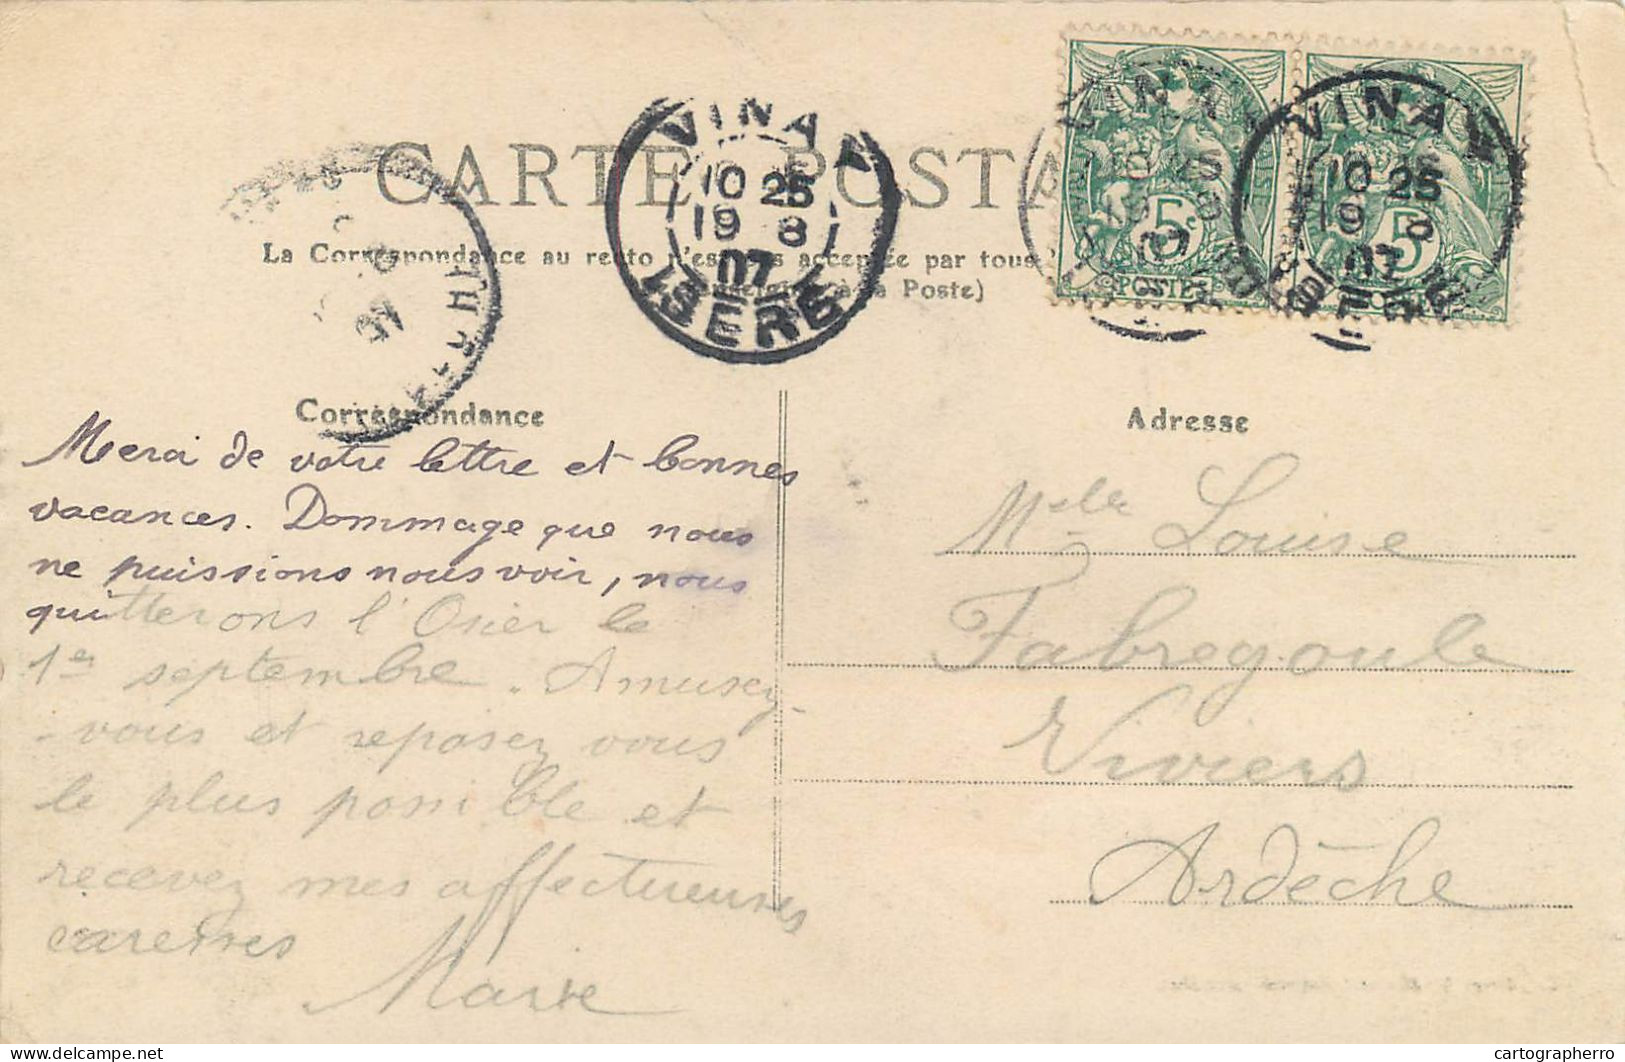 CARTE POSTA
La Correspondance au recto n'est pas acceptée par tous
à la Poste)
VINAY
10 25
19 8
07
ISÈRE
VINAY
10 25
19 8
07
5
POSTES
VINAY
10 25
19 8
07
5
Correspondance
Merci de votre lettre et bonnes
vacances. Dommage que nous
ne puissions nous voir, nous
quitterons l'Osier le
1er septembre. Amusez
-vous et reposez vous
le plus possible et
recevez mes affectueuses
caresses
Marie
Adresse
Melle Louise
Fabregoule
Viviers
Ardèche
delcampe.net
cartographerro